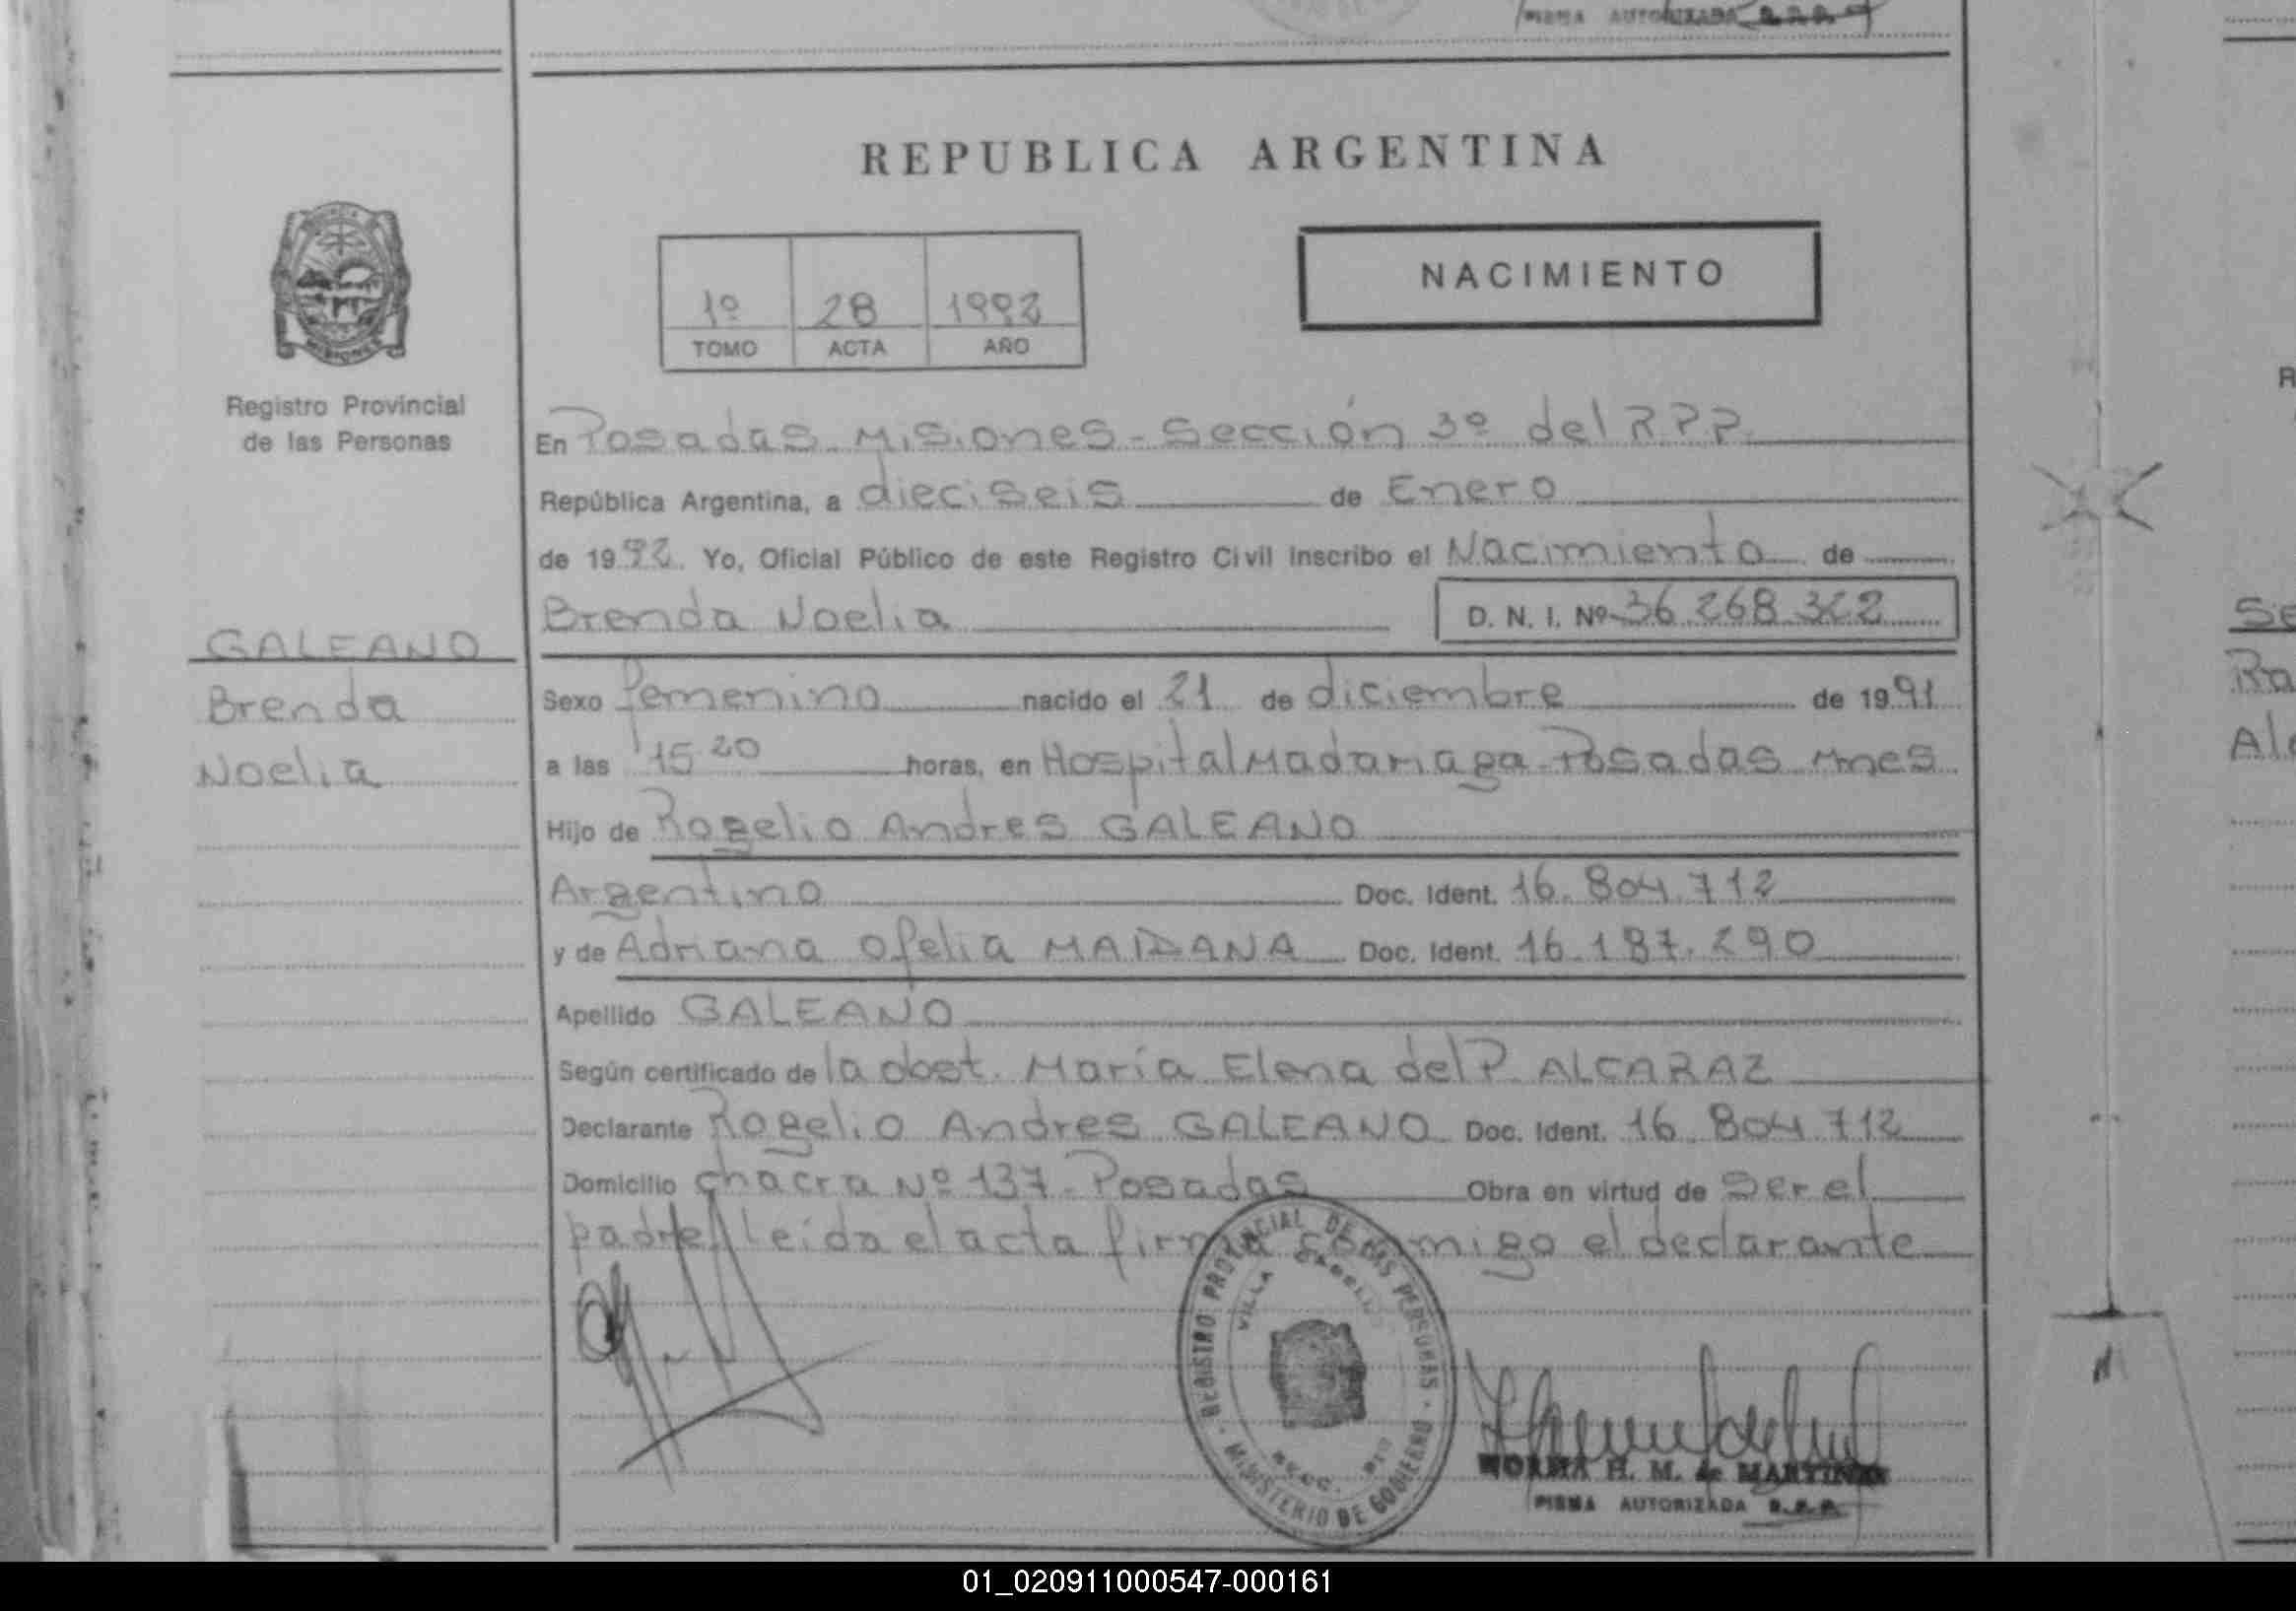 FIRMA AUTORIZADA R.P.P.
REPUBLICA ARGENTINA
NACIMIENTO
1º 28 1992
TOMO ACTA AÑO
MISIONES
Registro Provincial
de las Personas
En Posadas Misiones - Sección 3º del R.P.P.
República Argentina, a dieciseis de Enero
de 1992. Yo, Oficial Público de este Registro Civil inscribo el Nacimiento de
Brenda Noelia D. N. I. Nº 36.268.322
GALEANO
Brenda
Noelia
Sexo femenino nacido el 21 de diciembre de 1991
a las 15 20 horas, en Hospital Madariaga Posadas Mnes
Hijo de Rogelio Andres GALEANO
Argentino Doc. Ident. 16.804.712
y de Adriana Ofelia MAIDANA Doc. Ident. 16.187.290
Apellido GALEANO
Según certificado de la obst. María Elena del P. ALCARAZ
Declarante Rogelio Andres GALEANO Doc. Ident. 16.804.712
Domicilio chacra Nº 137 - Posadas Obra en virtud de ser el
padre leida el acta firma conmigo el declarante
REGISTRO PROVINCIAL DE LAS PERSONAS
MINISTERIO DE GOBIERNO
VILLA CABELLO
NORMA H. M. de MARTINEZ
FIRMA AUTORIZADA R.P.P.
R
Se
Ra
Al
01_020911000547-000161